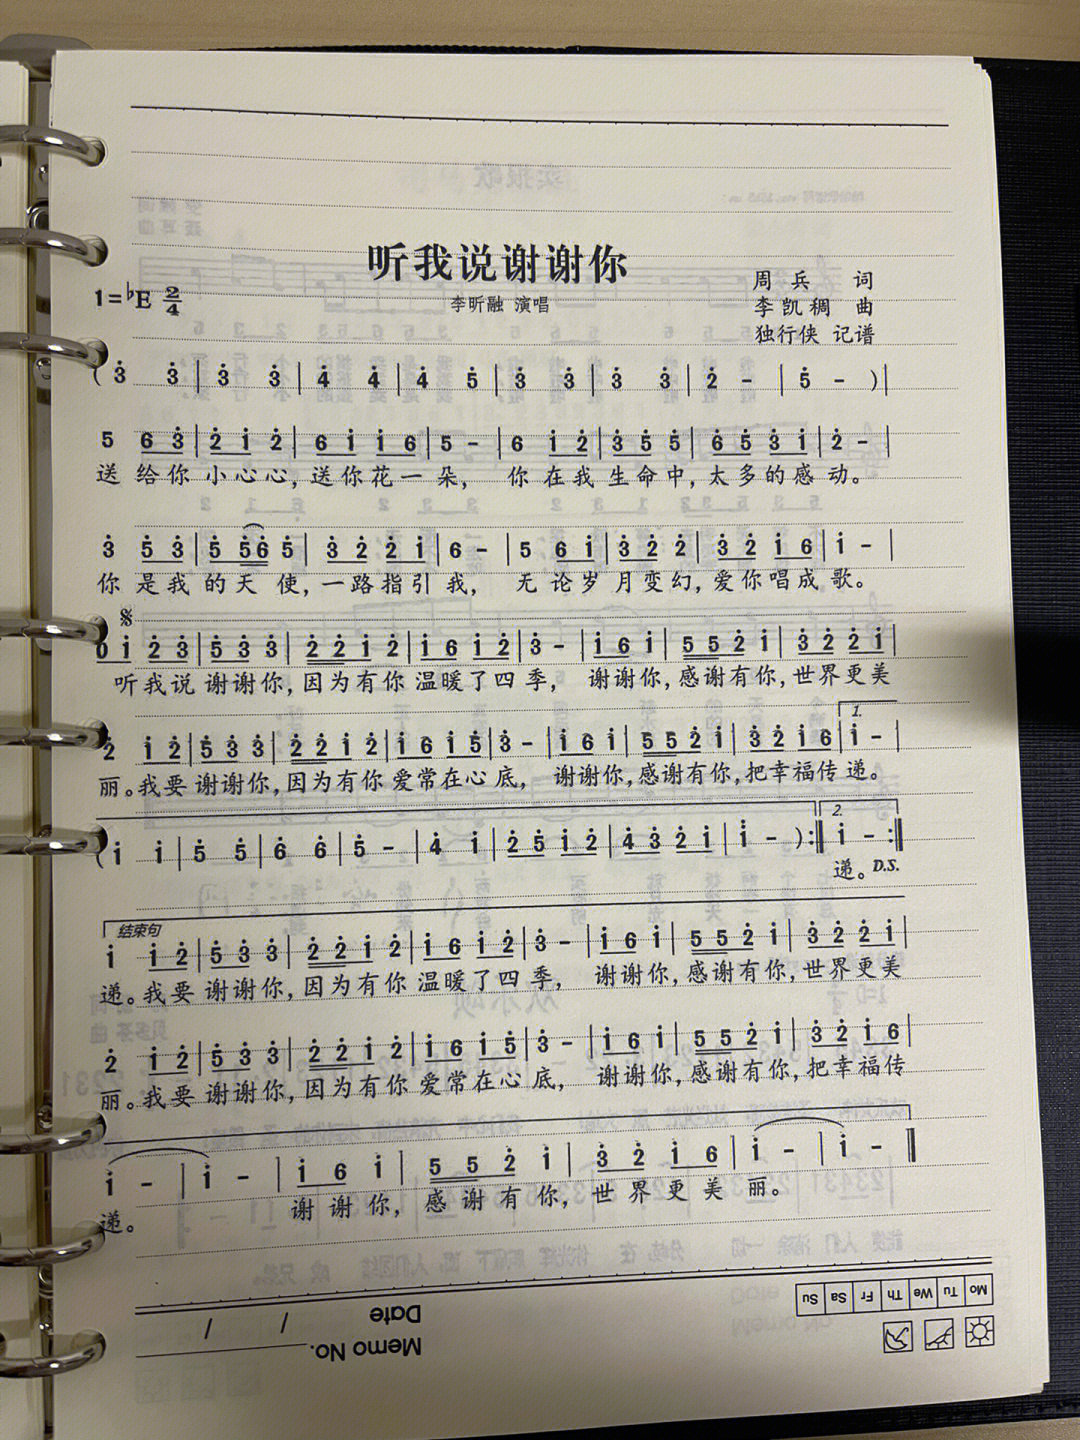 听我说谢谢你
1=♭E 2/4
李昕融 演唱
周兵 词
李凯稠 曲
独行侠 记谱
( 3̇ 3̇ | 3̇ 3̇ | 4̇ 4̇ | 4̇ 5̇ | 3̇ 3̇ | 3̇ 3̇ | 2̇ - | 5̇ - ) |
5 6 3̇ | 2̇ 1̇ 2̇ | 6 1̇ 1̇ 6 | 5 - | 6 1̇ 2̇ | 3̇ 5̇ 5̇ | 6̇ 5̇ 3̇ 1̇ | 2̇ - |
送给你小心心,送你花一朵, 你在我生命中,太多的感动。
3̇ 5̇ 3̇ | 5̇ 5̇ 6̇ 5̇ | 3̇ 2̇ 2̇ 1̇ | 6 - | 5 6 1̇ | 3̇ 2̇ 2̇ | 3̇ 2̇ 1̇ 6 | 1̇ - |
你是我的天使,一路指引我, 无论岁月变幻,爱你唱成歌。
0 1̇ 2̇ 3̇ | 5̇ 3̇ 3̇ | 2̇ 2̇ 1̇ 2̇ | 1̇ 6 1̇ 2̇ | 3̇ - | 1̇ 6 1̇ | 5 5 2̇ 1̇ | 3̇ 2̇ 2̇ 1̇ |
听我说谢谢你,因为有你温暖了四季, 谢谢你,感谢有你,世界更美
1.
2̇ 1̇ 2̇ | 5̇ 3̇ 3̇ | 2̇ 2̇ 1̇ 2̇ | 1̇ 6 1̇ 5̇ | 3̇ - | 1̇ 6 1̇ | 5 5 2̇ 1̇ | 3̇ 2̇ 1̇ 6 | 1̇ - |
丽。我要谢谢你,因为有你爱常在心底, 谢谢你,感谢有你,把幸福传递。
2.
( 1̇ 1̇ | 5̇ 5̇ | 6̇ 6̇ | 5̇ - | 4̇ 1̇ | 2̇ 5̇ 1̇ 2̇ | 4̇ 3̇ 2̇ 1̇ | 1̇ - ) :‖ 1̇ - :‖
递。D.S.
结束句
1̇ 1̇ 2̇ | 5̇ 3̇ 3̇ | 2̇ 2̇ 1̇ 2̇ | 1̇ 6 1̇ 2̇ | 3̇ - | 1̇ 6 1̇ | 5 5 2̇ 1̇ | 3̇ 2̇ 2̇ 1̇ |
递。我要谢谢你,因为有你温暖了四季, 谢谢你,感谢有你,世界更美
2̇ 1̇ 2̇ | 5̇ 3̇ 3̇ | 2̇ 2̇ 1̇ 2̇ | 1̇ 6 1̇ 5̇ | 3̇ - | 1̇ 6 1̇ | 5 5 2̇ 1̇ | 3̇ 2̇ 1̇ 6 |
丽。我要谢谢你,因为有你爱常在心底, 谢谢你,感谢有你,把幸福传
1̇ - | 1̇ - | 1̇ 6 1̇ | 5 5 2̇ 1̇ | 3̇ 2̇ 1̇ 6 | 1̇ - | 1̇ - ‖
递。 谢谢你,感谢有你,世界更美丽。
Mo Tu We Th Fr Sa Su
Date / /
Memo No.